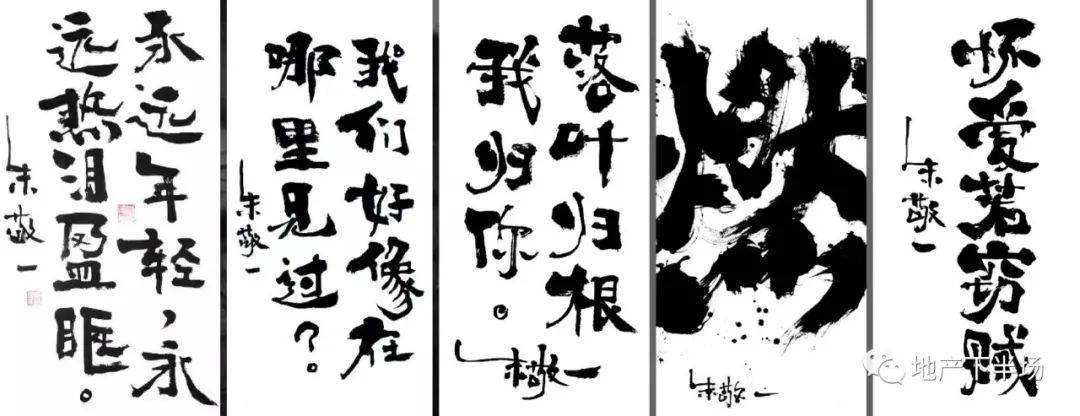 永远年轻，永
远热泪盈眶。
朱敬一
我们好像在
哪里见过？
朱敬一
落叶归根
我归你。
朱敬一
燃
朱敬一
怀爱若窃贼
朱敬一
地产下半场